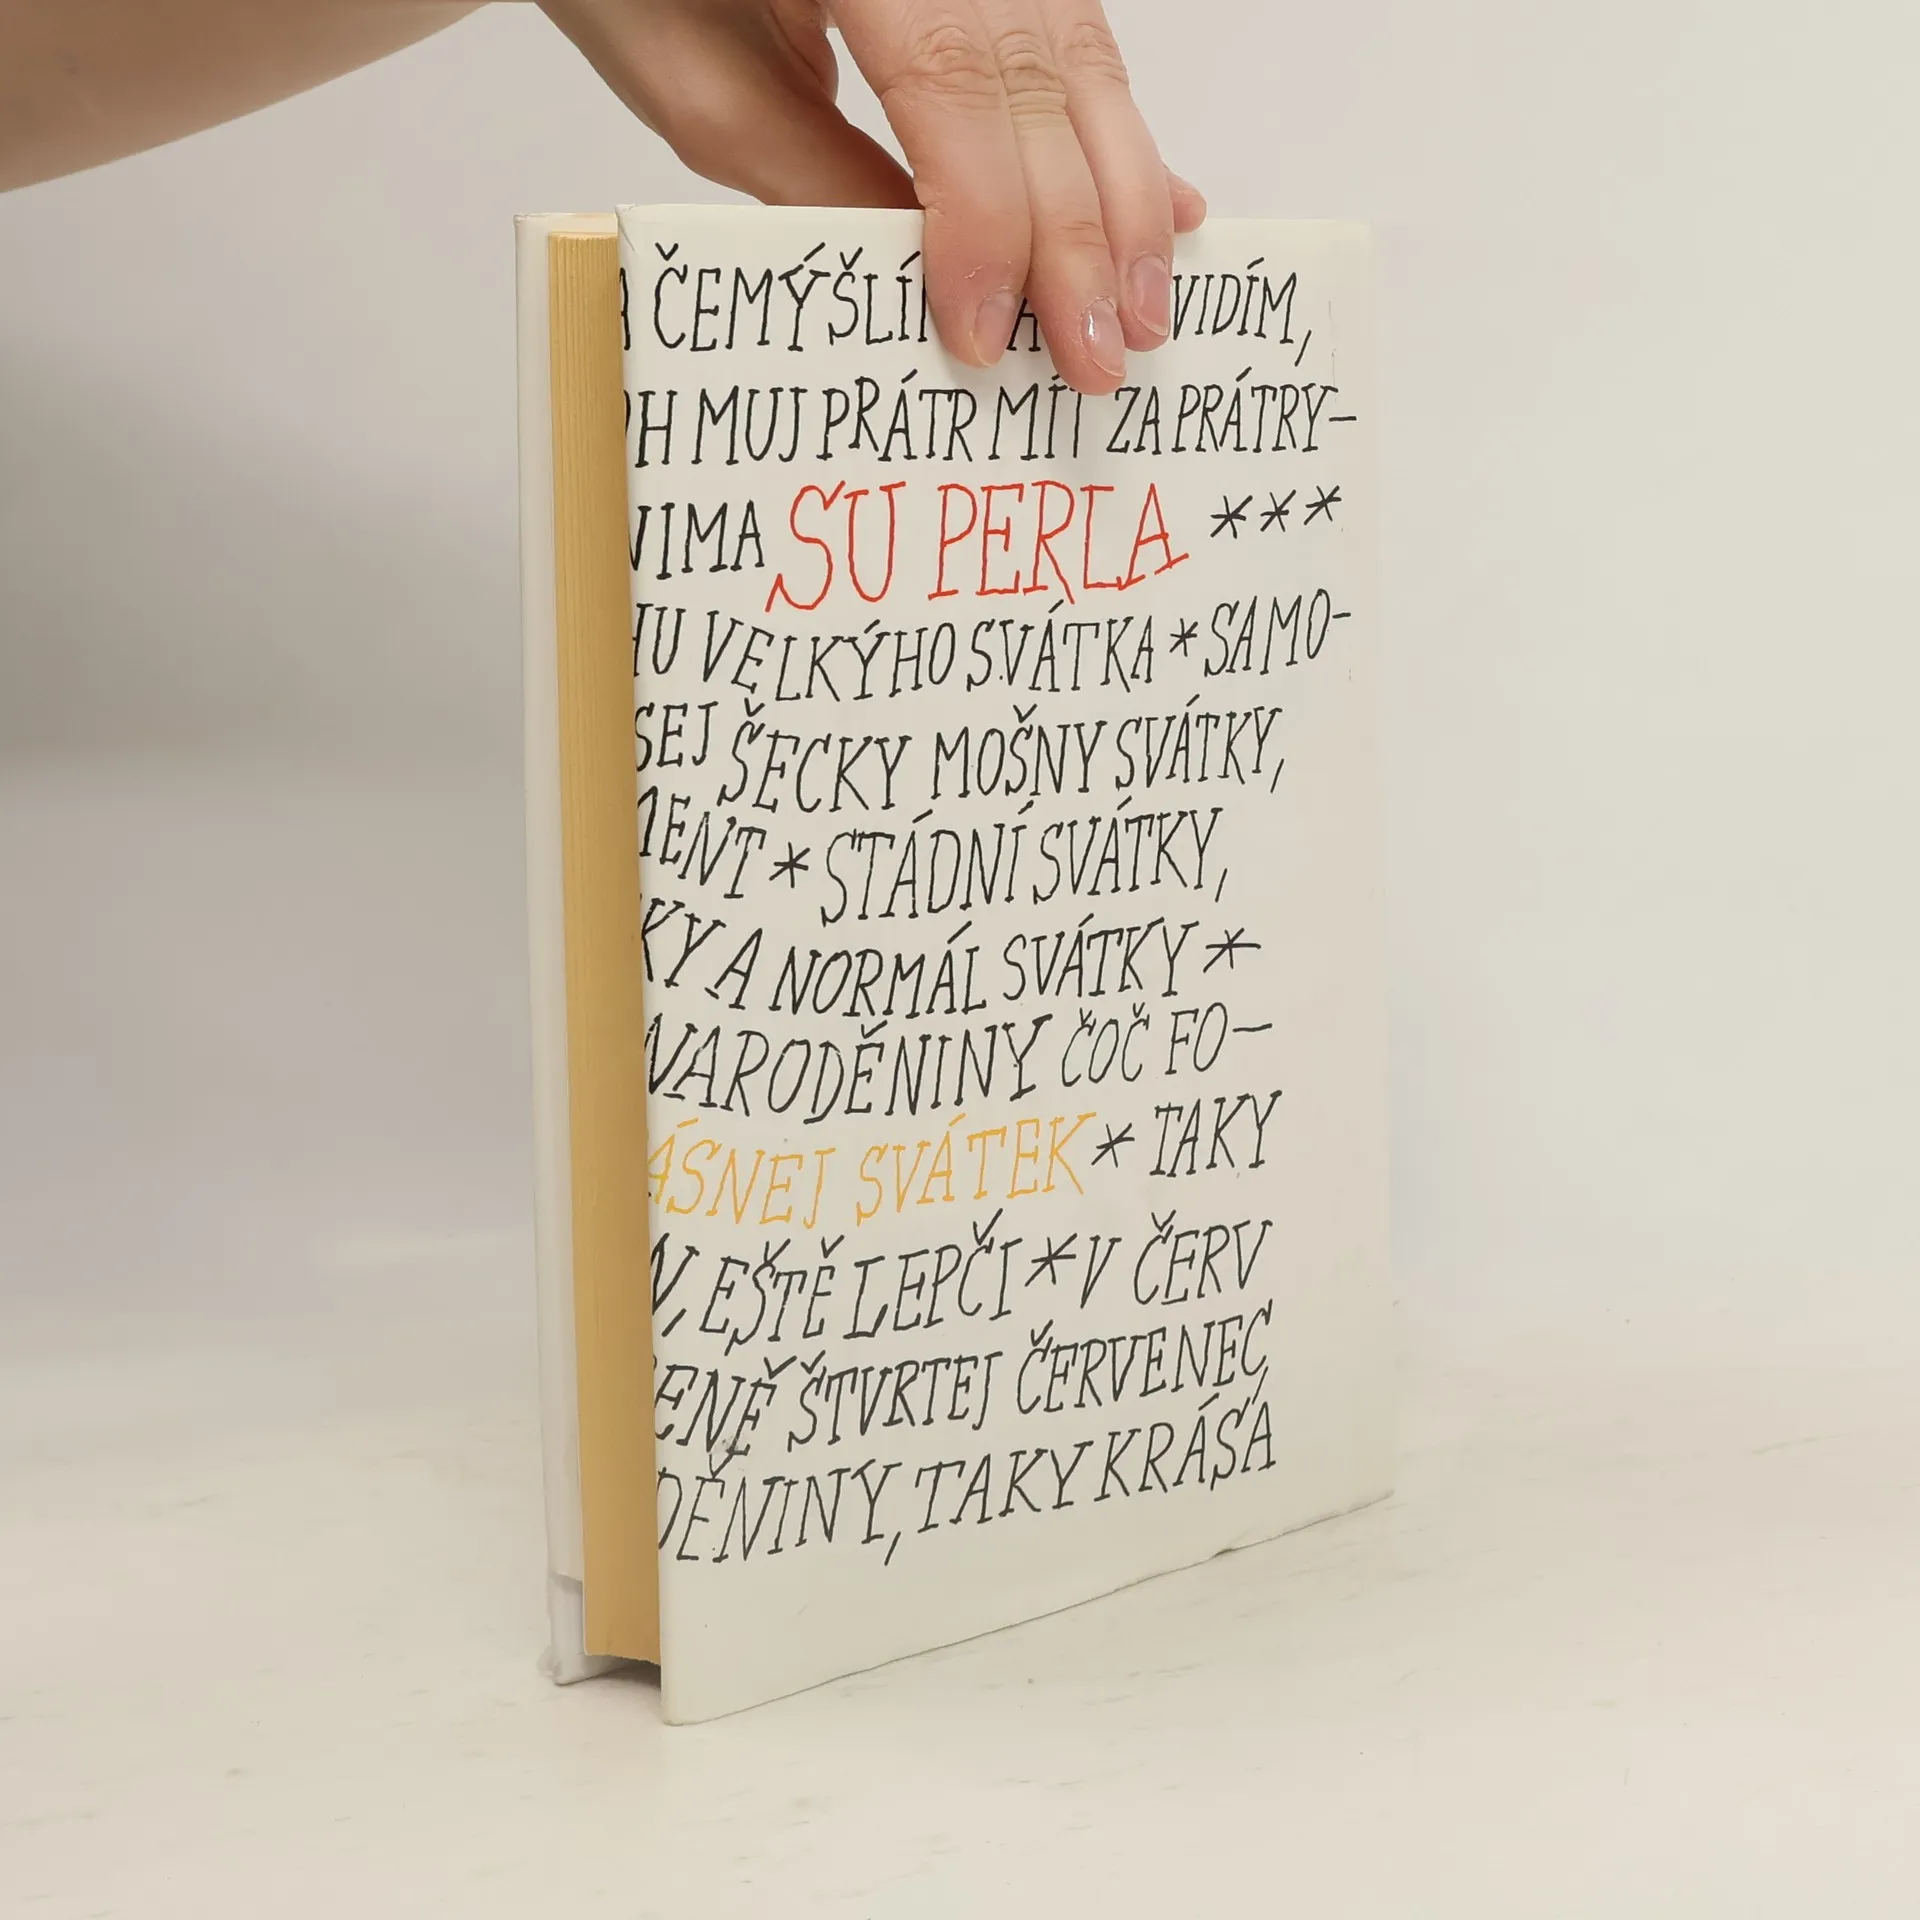 ČEMÝŠLÍ VIDÍM,
MUJ PRÁTR MÍT ZA PRÁTRY-
SU PERLA ***
VELKÝHO SVÁTKA * SAMO-
ŠECKY MOŠNY SVÁTKY,
* STÁDNÍ SVÁTKY,
A NORMÁL SVÁTKY *
NARODĚNINY ČOČ FO-
ÁSNEJ SVÁTEK * TAKY
EŠTĚ LEPČI * V ČERV
ENĚ ŠTVRTEJ ČERVENEC
DĚNINY, TAKY KRÁSA